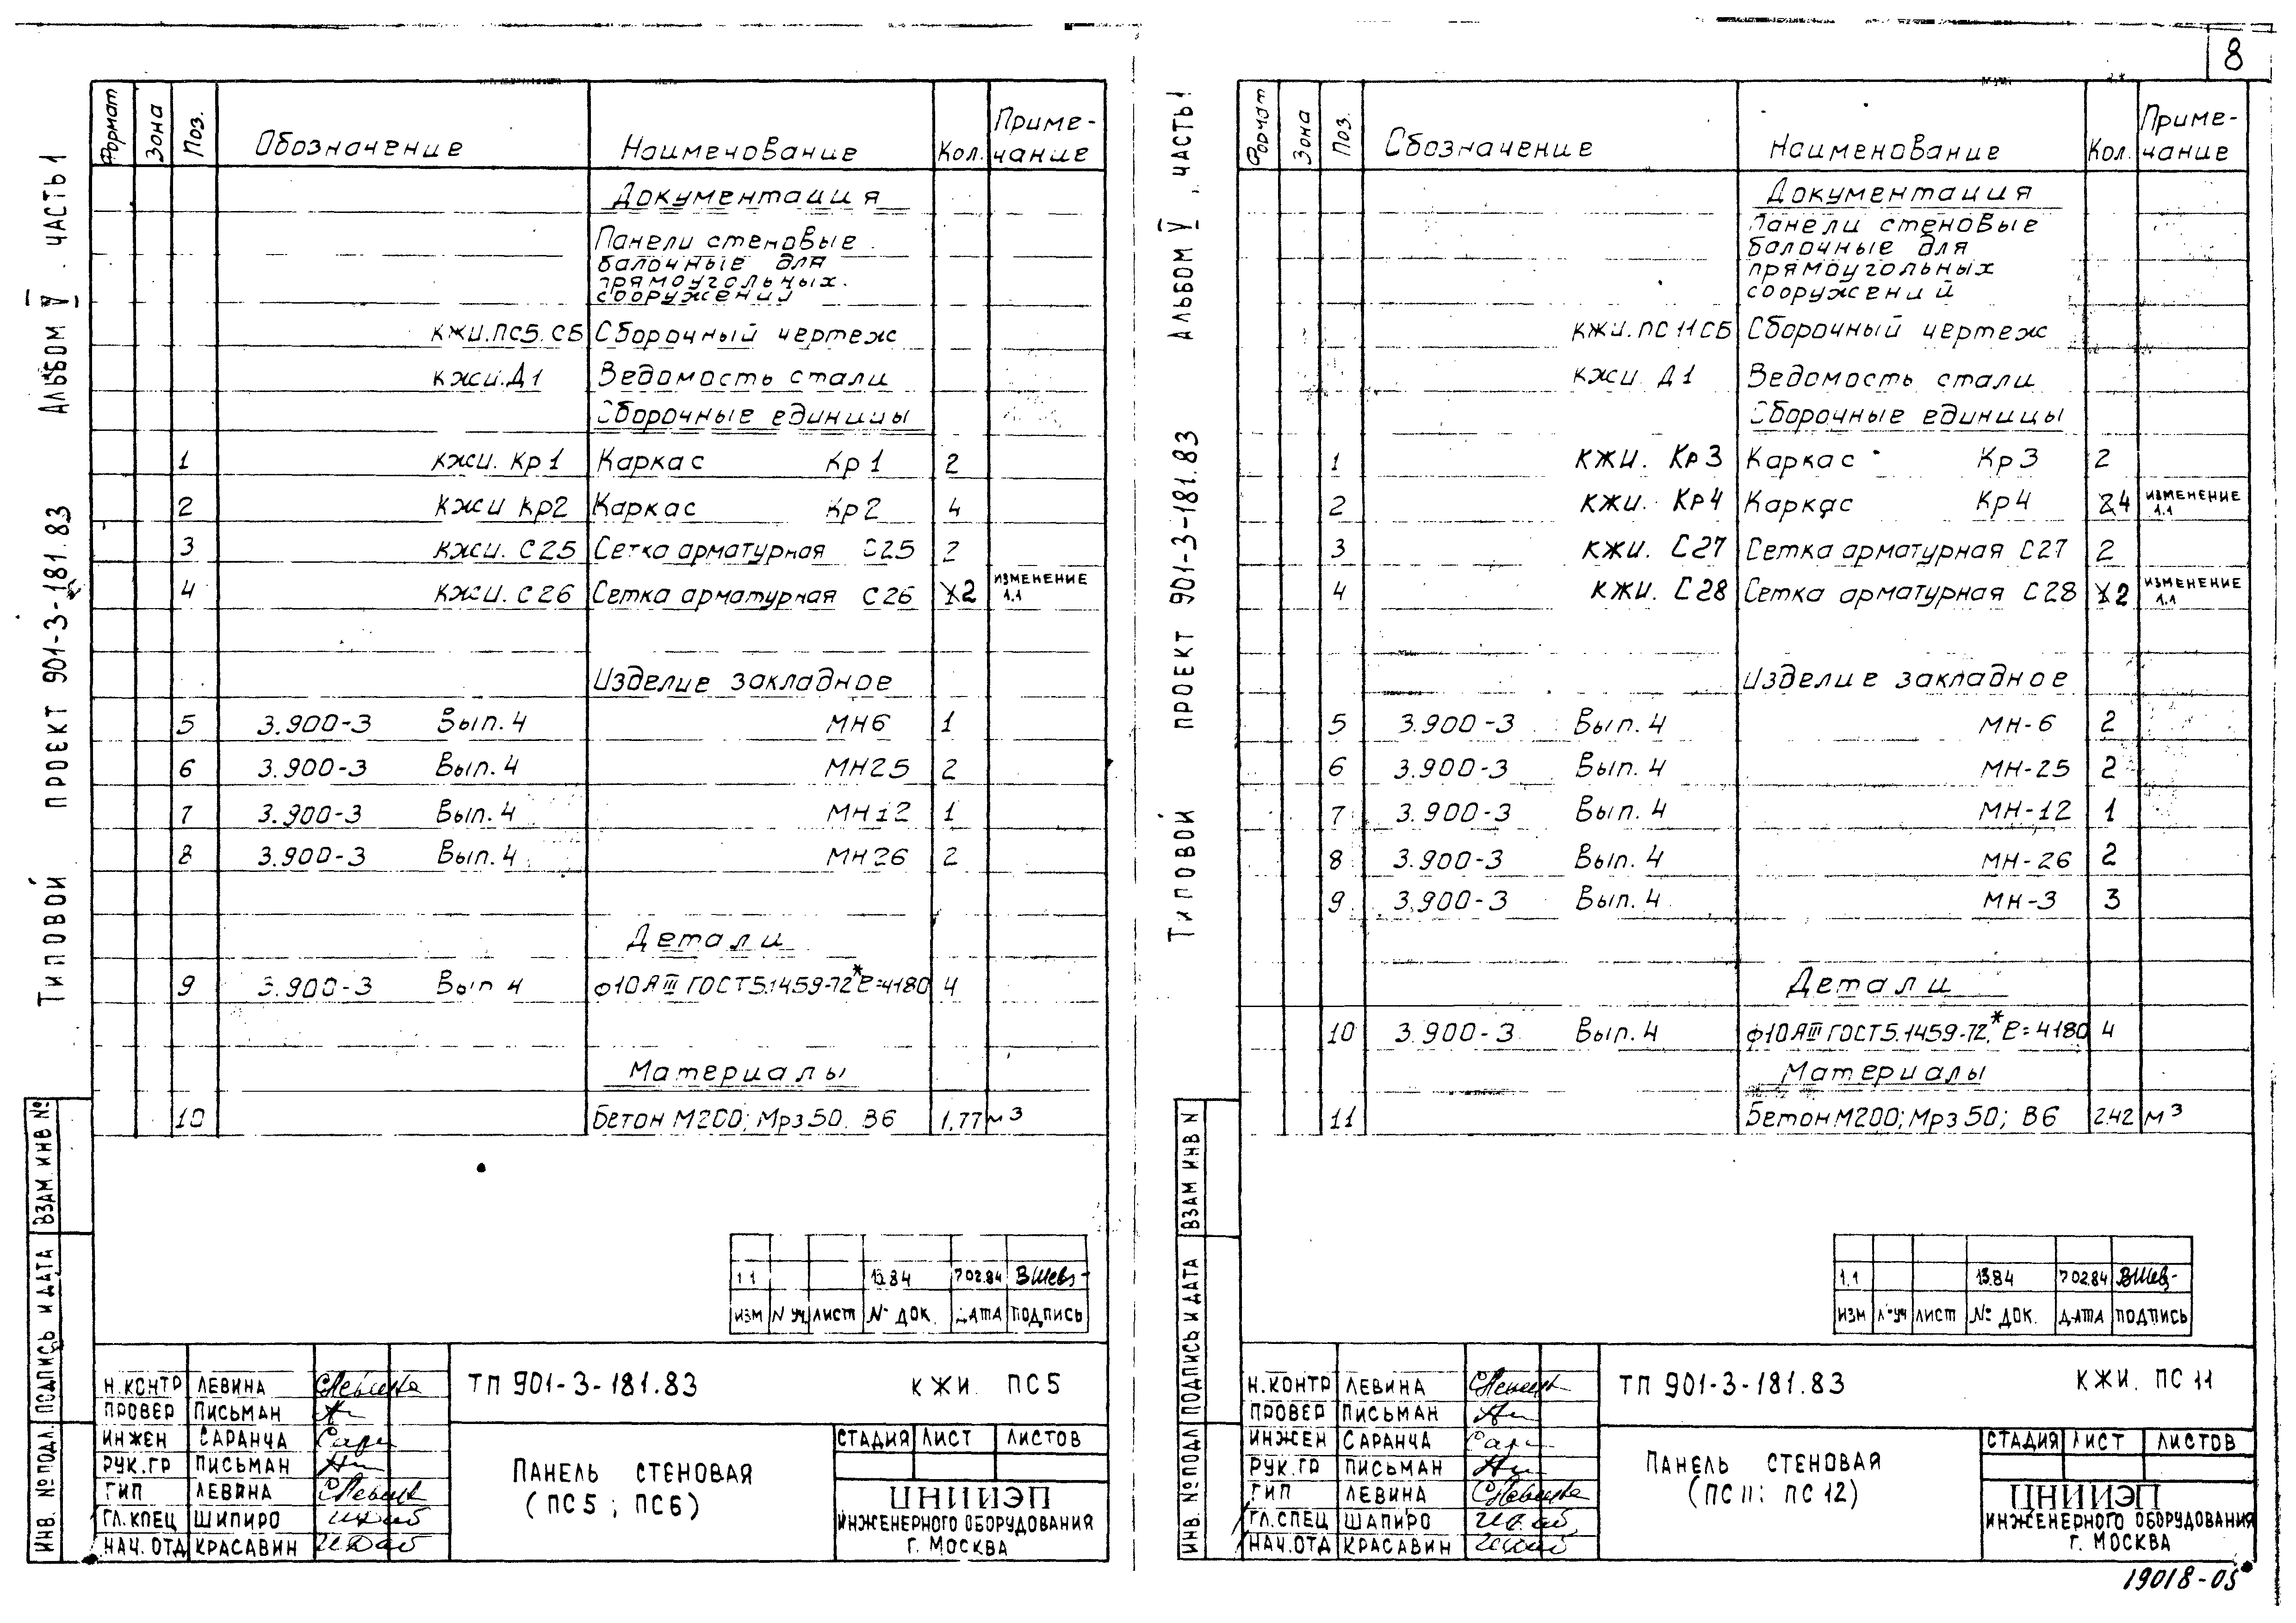 8
ТИПОВОЙ ПРОЕКТ 901-3-181.83 АЛЬБОМ V. ЧАСТЬ 1
Формат Зона Поз. Обозначение Наименование Кол. Приме-
чание
Документация
Панели стеновые
балочные для
прямоугольных
сооружений
КЖИ.ПС5.СБ Сборочный чертеж
КЖИ.Д1 Ведомость стали
Сборочные единицы
1 КЖИ. Кр1 Каркас Кр1 2
2 КЖИ Кр2 Каркас Кр2 4
3 КЖИ. С25 Сетка арматурная С25 2
4 КЖИ. С26 Сетка арматурная С26 2 ИЗМЕНЕНИЕ
1.1
Изделие закладное
5 3.900-3 Вып. 4 МН6 1
6 3.900-3 Вып. 4 МН25 2
7 3.900-3 Вып. 4 МН12 1
8 3.900-3 Вып. 4 МН26 2
Детали
9 3.900-3 Вып 4 ф10АIII ГОСТ5.1459-72* ℓ=4180 4
Материалы
10 Бетон М200; Мрз50. В6 1,77 м3
ВЗАМ. ИНВ №
ПОДПИСЬ И ДАТА
ИНВ. № ПОДЛ.
1.1 13.84 7 02.84
ИЗМ N УЧ ЛИСТ № ДОК. ДАТА ПОДПИСЬ
Н.КОНТР ЛЕВИНА
ПРОВЕР ПИСЬМАН
ИНЖЕН САРАНЧА
РУК.ГР ПИСЬМАН
ГИП ЛЕВИНА
ГЛ.СПЕЦ ШАПИРО
НАЧ.ОТД КРАСАВИН
ТП 901-3-181.83 КЖИ. ПС5
ПАНЕЛЬ СТЕНОВАЯ
(ПС5; ПС6)
СТАДИЯ ЛИСТ ЛИСТОВ
ЦНИИЭП
ИНЖЕНЕРНОГО ОБОРУДОВАНИЯ
Г. МОСКВА
ТИПОВОЙ ПРОЕКТ 901-3-181.83 АЛЬБОМ V, ЧАСТЬ 1
Формат Зона Поз. Обозначение Наименование Кол. Приме-
чание
Документация
Панели стеновые
балочные для
прямоугольных
сооружений
КЖИ.ПС11СБ Сборочный чертеж
КЖИ Д1 Ведомость стали
Сборочные единицы
1 КЖИ. Кр3 Каркас Кр3 2
2 КЖИ. Кр4 Каркас Кр4 2 4 ИЗМЕНЕНИЕ
1.1
3 КЖИ. С27 Сетка арматурная С27 2
4 КЖИ. С28 Сетка арматурная С28 2 ИЗМЕНЕНИЕ
1.1
Изделие закладное
5 3.900-3 Вып. 4 МН-6 2
6 3.900-3 Вып. 4 МН-25 2
7 3.900-3 Вып. 4 МН-12 1
8 3.900-3 Вып. 4 МН-26 2
9 3.900-3 Вып. 4 МН-3 3
Детали
10 3.900-3 Вып. 4 ф10АIII ГОСТ5.1459-72.* ℓ=4180 4
Материалы
11 Бетон М200; Мрз50; В6 2.42 м3
ВЗАМ ИНВ N
ПОДПИСЬ И ДАТА
ИНВ. № ПОДЛ
1.1 13.84 7 02.84
ИЗМ № УЧ ЛИСТ № ДОК. ДАТА ПОДПИСЬ
Н.КОНТР ЛЕВИНА
ПРОВЕР ПИСЬМАН
ИНЖЕН САРАНЧА
РУК.ГР ПИСЬМАН
ГИП ЛЕВИНА
ГЛ.СПЕЦ ШАПИРО
НАЧ.ОТД КРАСАВИН
ТП 901-3-181.83 КЖИ. ПС 11
ПАНЕЛЬ СТЕНОВАЯ
(ПС 11; ПС 12)
СТАДИЯ ЛИСТ ЛИСТОВ
ЦНИИЭП
ИНЖЕНЕРНОГО ОБОРУДОВАНИЯ
Г. МОСКВА
19018-05